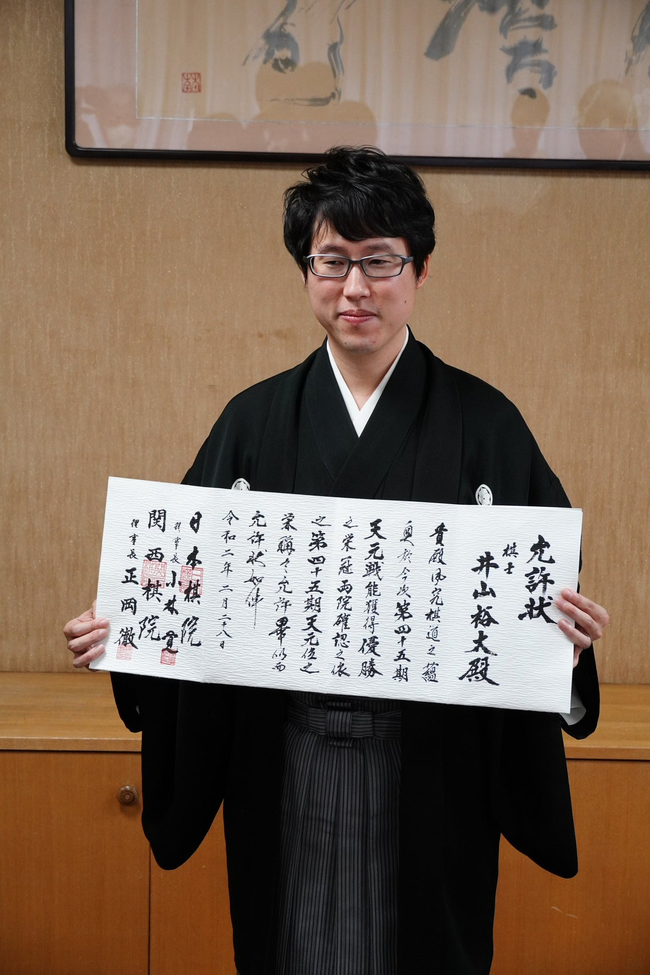 允許状
棋士
井山裕太殿
貴殿夙究棋道之蘊
奥於今次第四十五期
天元戦能獲得優勝
之栄冠両院確認之依
之第四十五期天元位之
栄稱を允許畢仍而
允許状如件
令和二年二月二十八日
日本棋院
理事長 小林覚
関西棋院
理事長 正岡徹